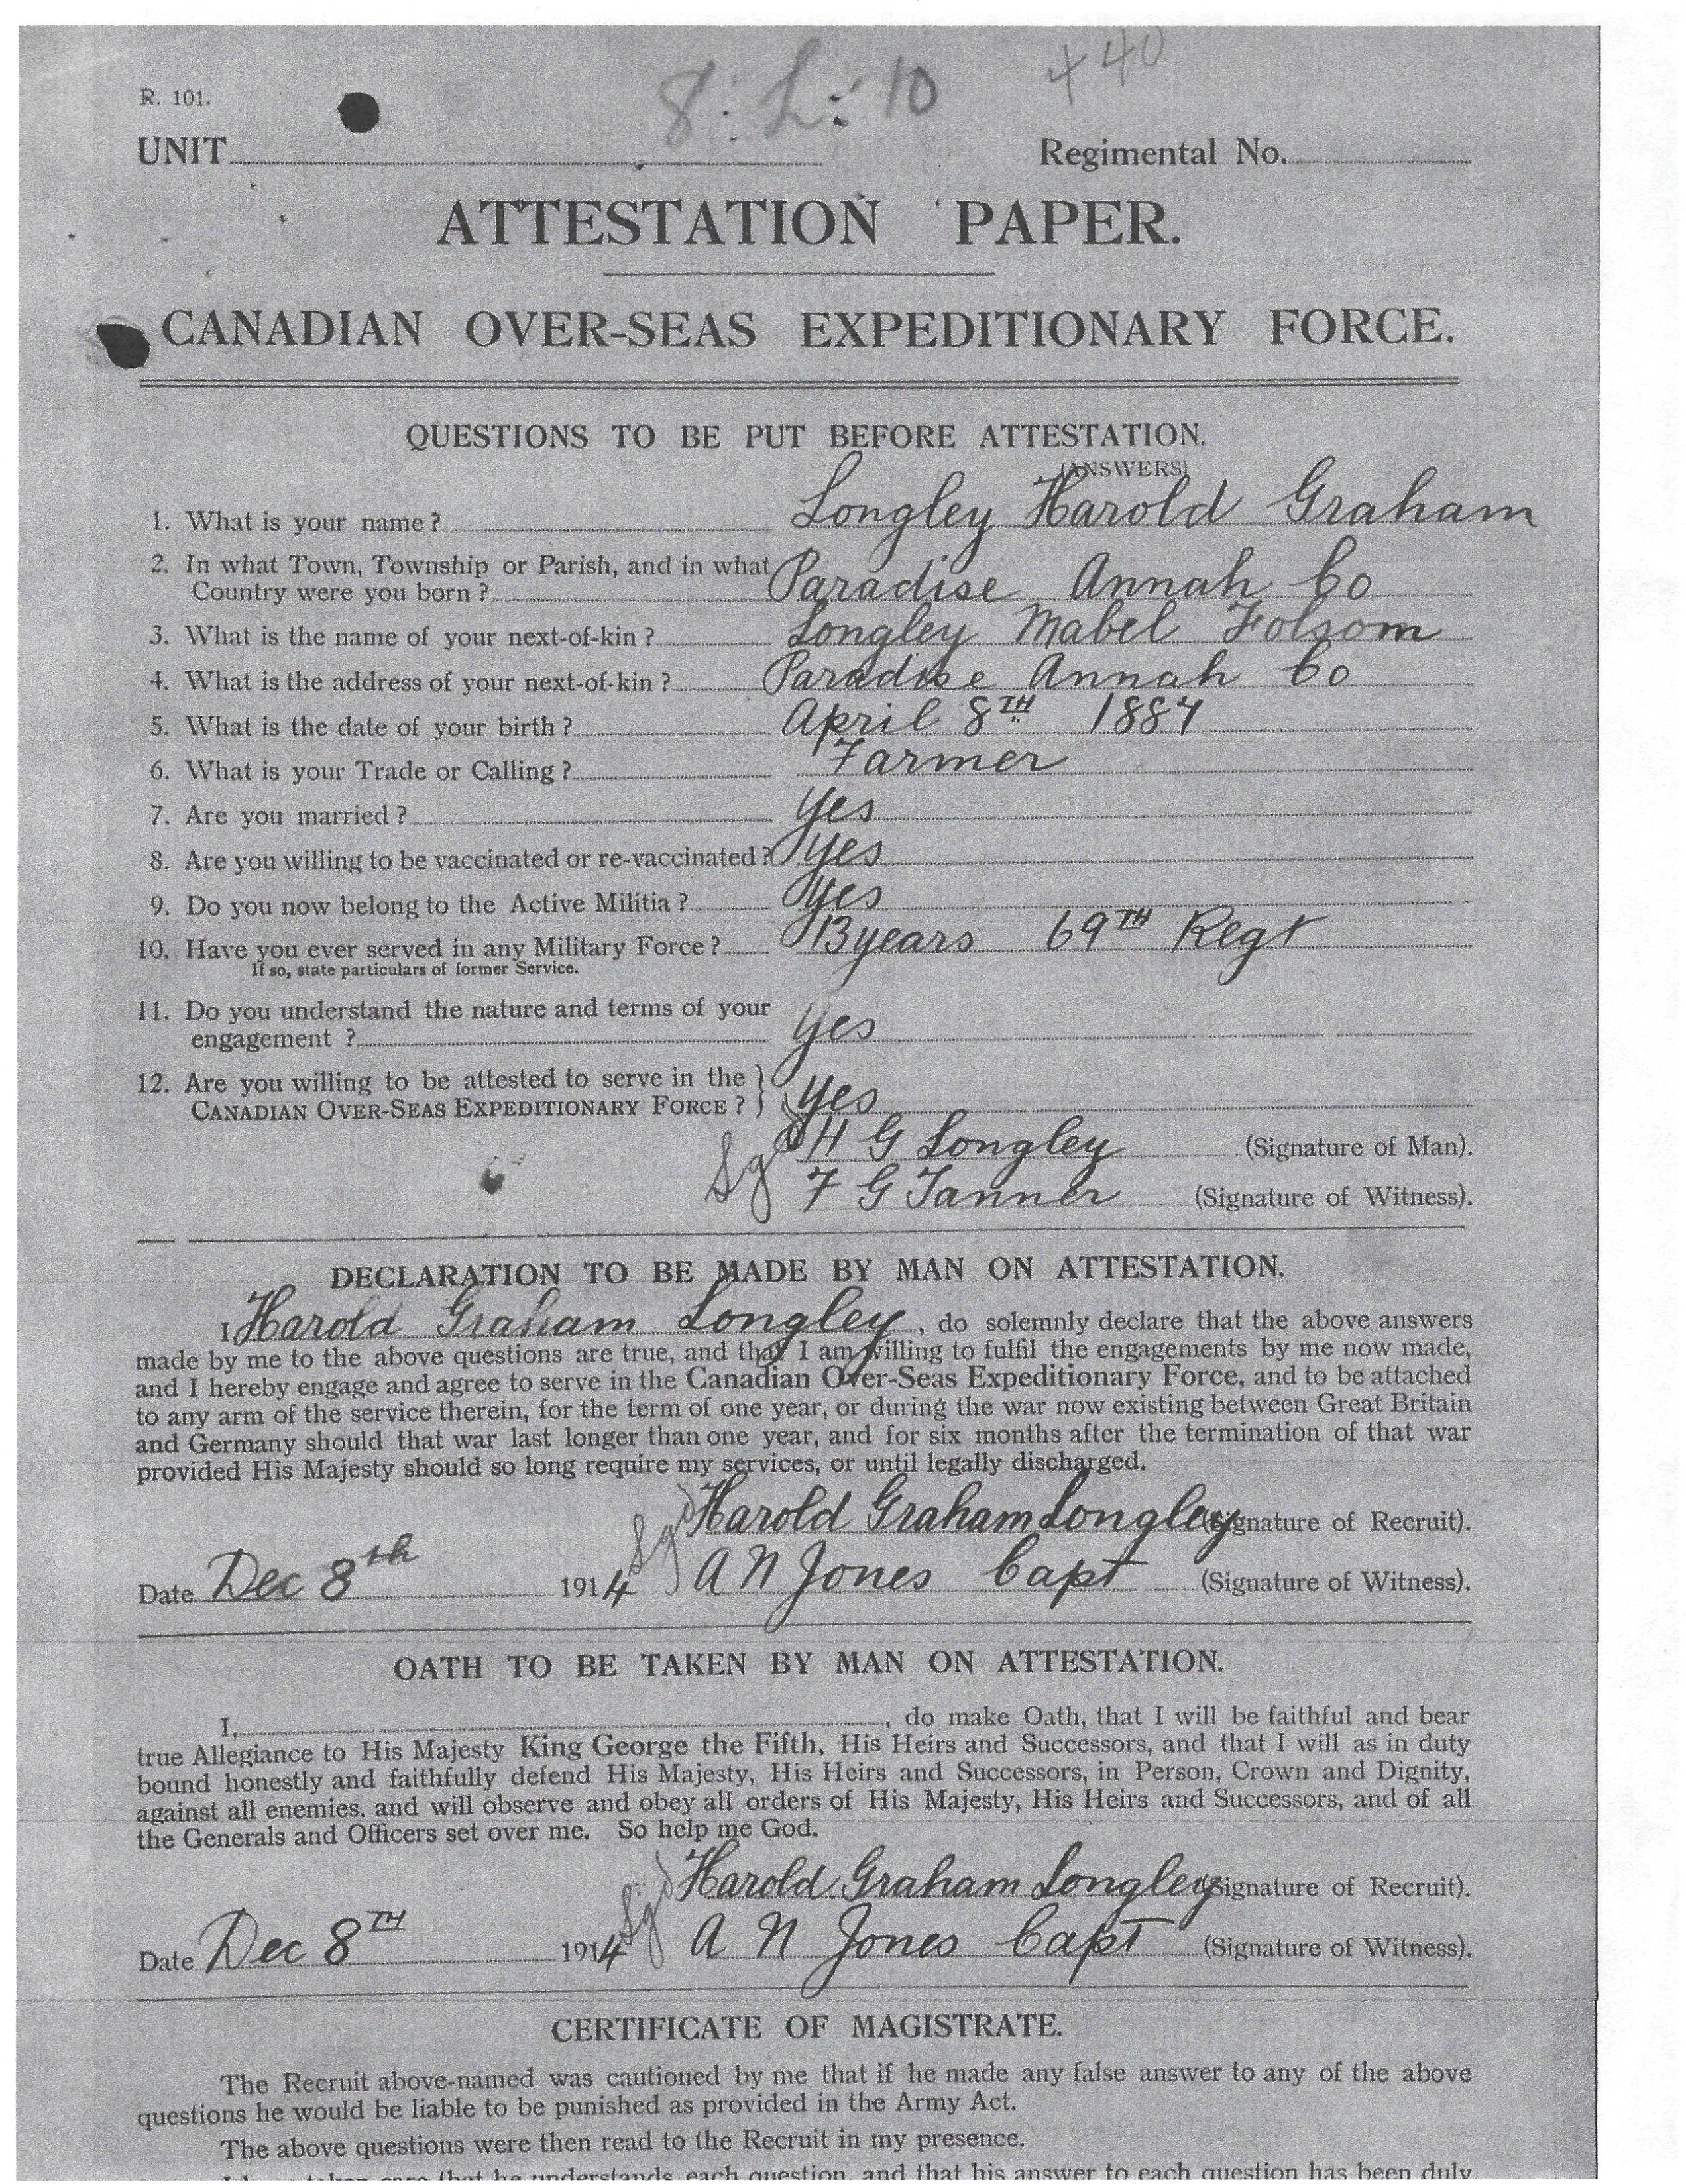 8: L: 10 + 40
R. 101.
UNIT Regimental No.
ATTESTATION PAPER.
CANADIAN OVER-SEAS EXPEDITIONARY FORCE.
QUESTIONS TO BE PUT BEFORE ATTESTATION.
(ANSWERS)
1. What is your name? Longley Harold Graham
2. In what Town, Township or Parish, and in what
Country were you born? Paradise Annah Co
3. What is the name of your next-of-kin? Longley Mabel Folsom
4. What is the address of your next-of-kin? Paradise Annah Co
5. What is the date of your birth? April 8TH 1887
6. What is your Trade or Calling? Farmer
7. Are you married? Yes
8. Are you willing to be vaccinated or re-vaccinated? Yes
9. Do you now belong to the Active Militia? Yes
10. Have you ever served in any Military Force? 13 years 69TH Regt
If so, state particulars of former Service.
11. Do you understand the nature and terms of your
engagement? Yes
12. Are you willing to be attested to serve in the
CANADIAN OVER-SEAS EXPEDITIONARY FORCE? Yes
Sgd H G Longley (Signature of Man).
F G Tanner (Signature of Witness).
DECLARATION TO BE MADE BY MAN ON ATTESTATION.
I Harold Graham Longley, do solemnly declare that the above answers
made by me to the above questions are true, and that I am willing to fulfil the engagements by me now made,
and I hereby engage and agree to serve in the Canadian Over-Seas Expeditionary Force, and to be attached
to any arm of the service therein, for the term of one year, or during the war now existing between Great Britain
and Germany should that war last longer than one year, and for six months after the termination of that war
provided His Majesty should so long require my services, or until legally discharged.
Sgd Harold Graham Longley (Signature of Recruit).
Date Dec 8th 1914 A N Jones Capt (Signature of Witness).
OATH TO BE TAKEN BY MAN ON ATTESTATION.
I, , do make Oath, that I will be faithful and bear
true Allegiance to His Majesty King George the Fifth, His Heirs and Successors, and that I will as in duty
bound honestly and faithfully defend His Majesty, His Heirs and Successors, in Person, Crown and Dignity,
against all enemies, and will observe and obey all orders of His Majesty, His Heirs and Successors, and of all
the Generals and Officers set over me. So help me God.
Sgd Harold Graham Longley (Signature of Recruit).
Date Dec 8TH 1914 A N Jones Capt (Signature of Witness).
CERTIFICATE OF MAGISTRATE.
The Recruit above-named was cautioned by me that if he made any false answer to any of the above
questions he would be liable to be punished as provided in the Army Act.
The above questions were then read to the Recruit in my presence.
I have taken care that he understands each question, and that his answer to each question has been duly